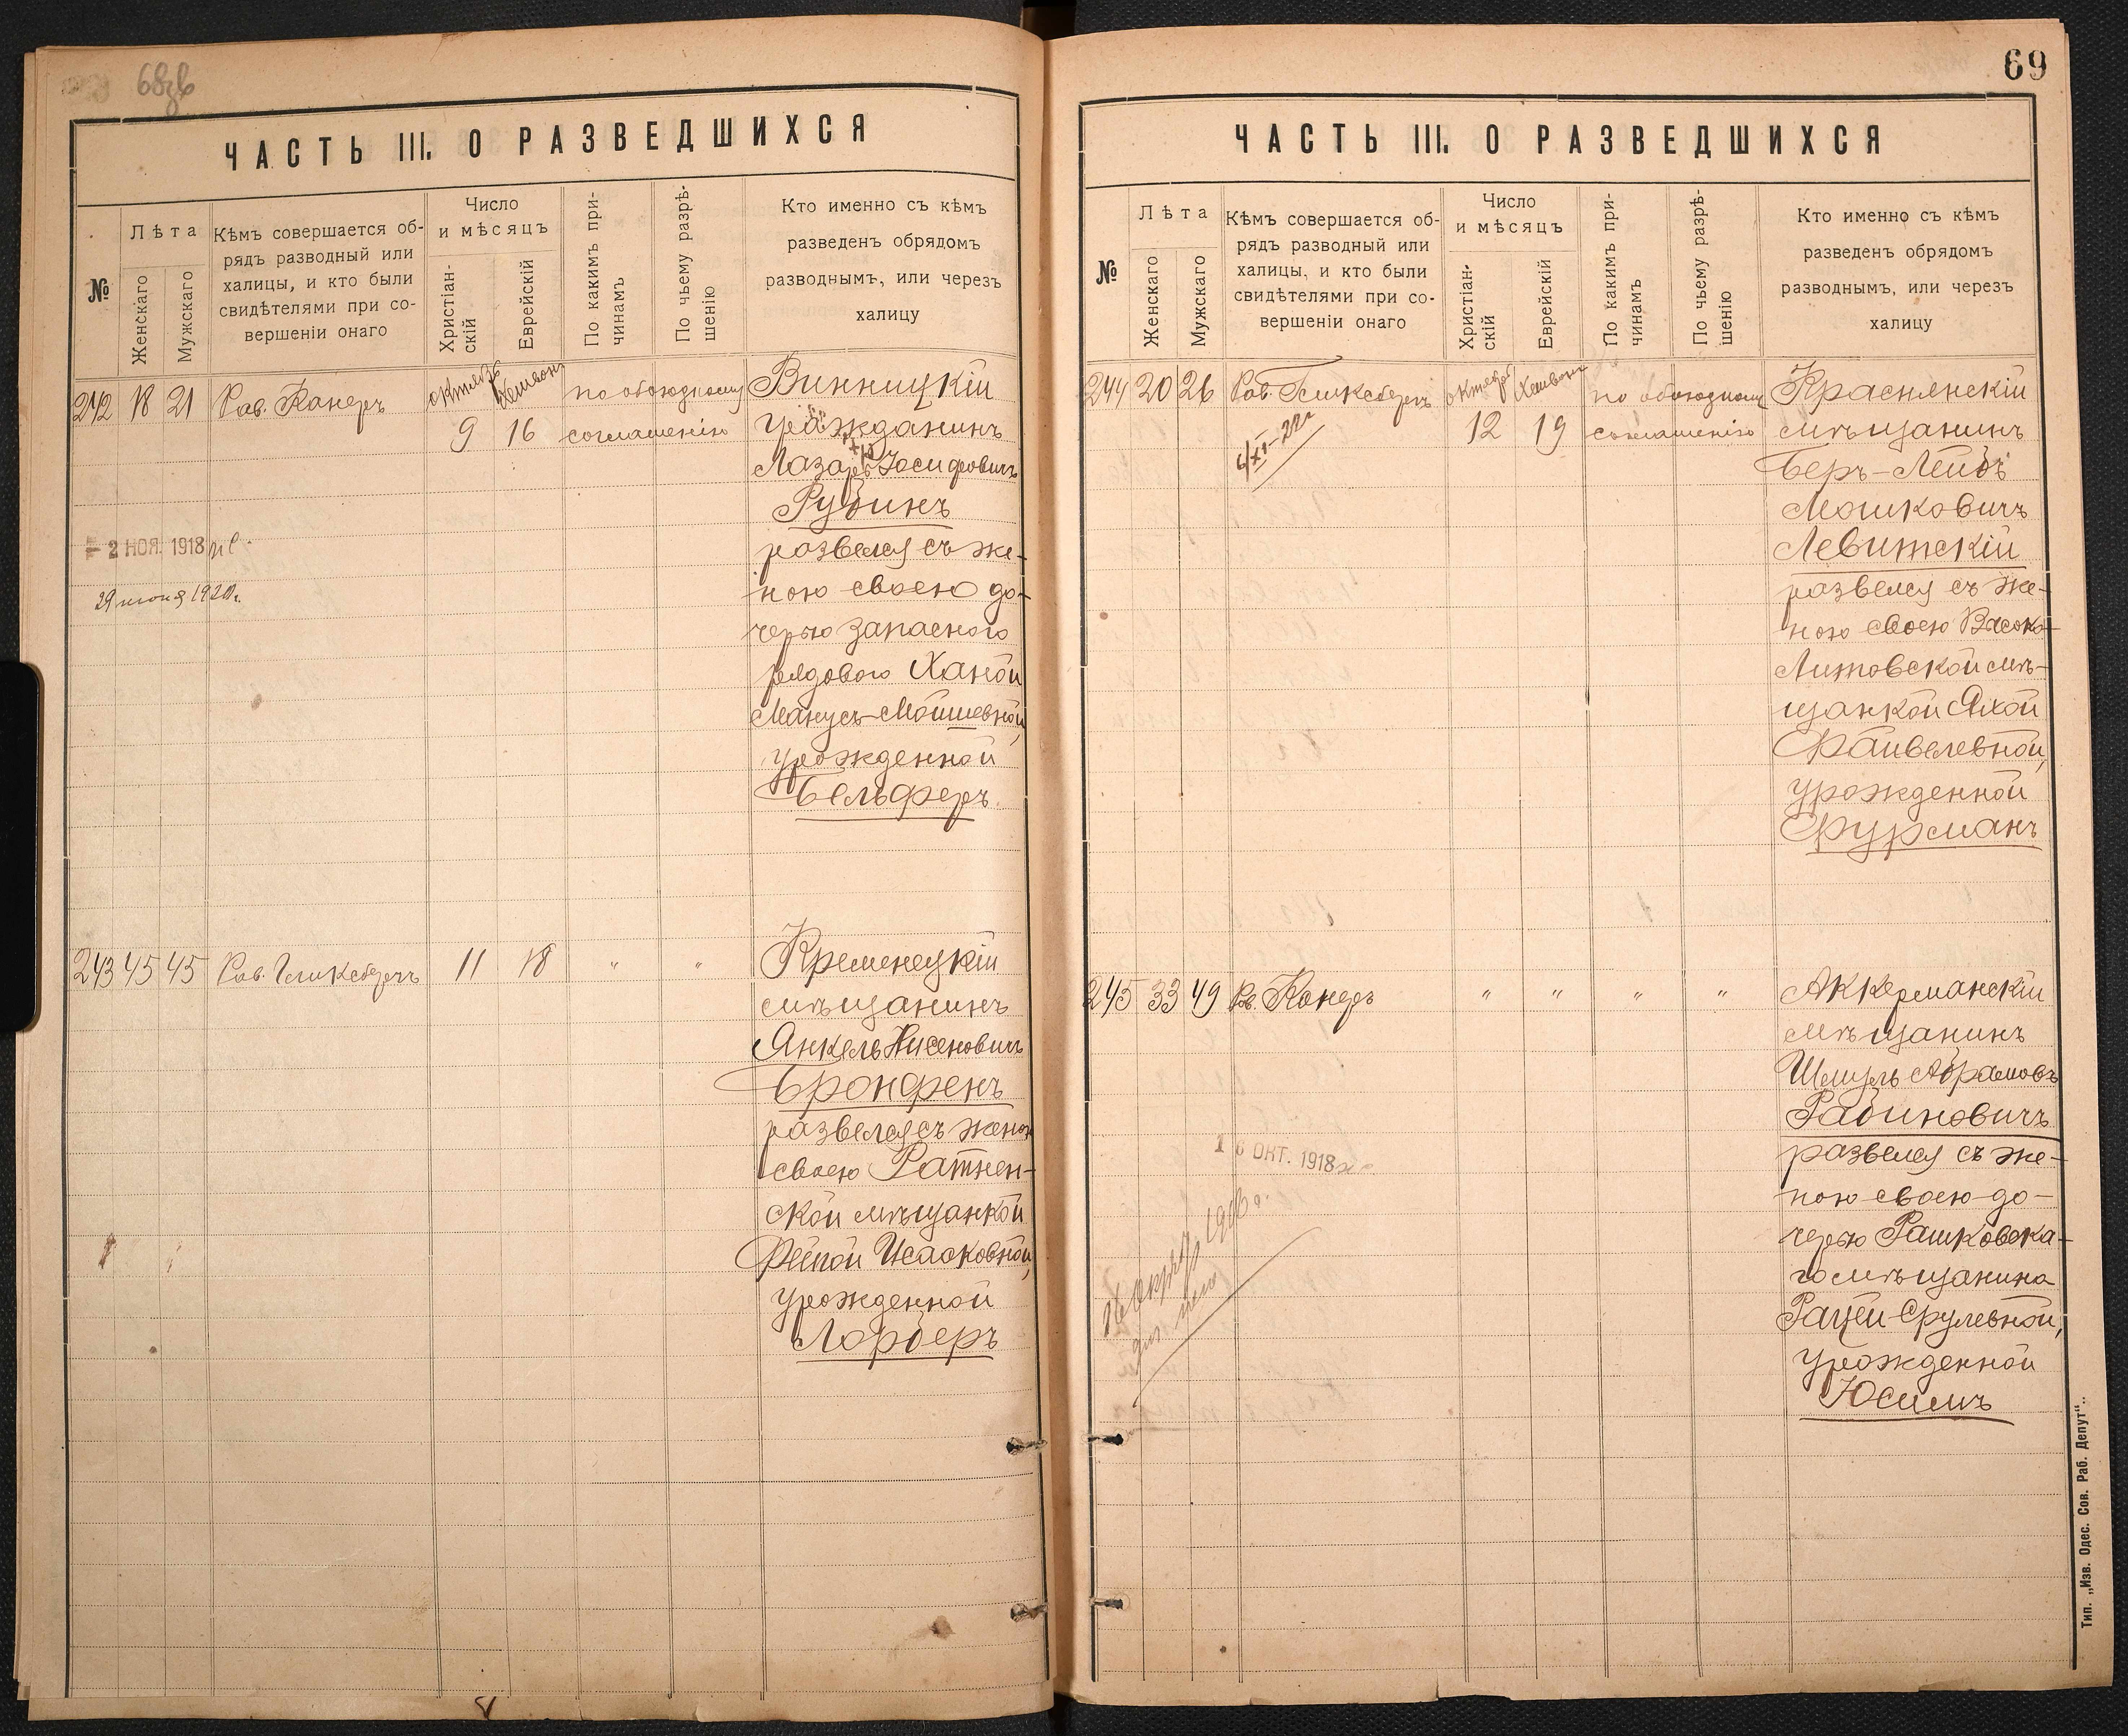 68зв
ЧАСТЬ III. О РАЗВЕДШИХСЯ
№
Лѣта
Женскаго
Мужскаго
Кѣмъ совершается об-
рядъ разводный или
халицы, и кто были
свидѣтелями при со-
вершеніи онаго
Число
и мѣсяцъ
Христіан-
скій
Еврейскій
По какимъ при-
чинамъ
По чьему разрѣ-
шенію
Кто именно съ кѣмъ
разведенъ обрядомъ
разводнымъ, или черезъ
халицу
242 18 21 Рав. Канеръ
октябр Хешвон
9 16
по обоюдному
соглашенію
Винницкій
гражданинъ
Лазарь Іосифовичъ
Рубинъ
развелся съ же-
ною своею до-
черью запасного
рядового Ханой
Манусъ-Мошевной,
урожденной
Бельферъ.
2 НОЯ. 1918
29 июня 1920г.
243 45 45 Рав. Гликсбергъ 11 18 " "
Кременецкій
мѣщанинъ
Янкель Нисеновичъ
Бронфенъ
развелся съ женою
своею Ратнен-
ской мѣщанкой
Фейгой Исааковной,
урожденной
Лорберъ
69
ЧАСТЬ III. О РАЗВЕДШИХСЯ
№
Лѣта
Женскаго
Мужскаго
Кѣмъ совершается об-
рядъ разводный или
халицы, и кто были
свидѣтелями при со-
вершеніи онаго
Число
и мѣсяцъ
Христіан-
скій
Еврейскій
По какимъ при-
чинамъ
По чьему разрѣ-
шенію
Кто именно съ кѣмъ
разведенъ обрядомъ
разводнымъ, или черезъ
халицу
244 20 26 Рав. Гликсбергъ
4/XI-22г
октябр Хешвон
12 19
по обоюдному
соглашенію
Краснянскій
мѣщанинъ
Беръ-Лейбъ
Мошковичъ
Левитскій
развелся съ же-
ною своею Высоко-
Литовской мѣ-
щанкой Яхой
Файвелевной,
урожденной
Фурманъ
245 33 49 Рав. Канеръ " " " "
Аккерманскій
мѣщанинъ
Шмуль Абрамовъ
Рабиновичъ
развелся съ же-
ною своею до-
черью Рашковска-
го мѣщанина
Рацей Срулевной,
урожденной
Юсимъ
16 ОКТ. 1918
Тип. „Изв. Одес. Сов. Раб. Депут".